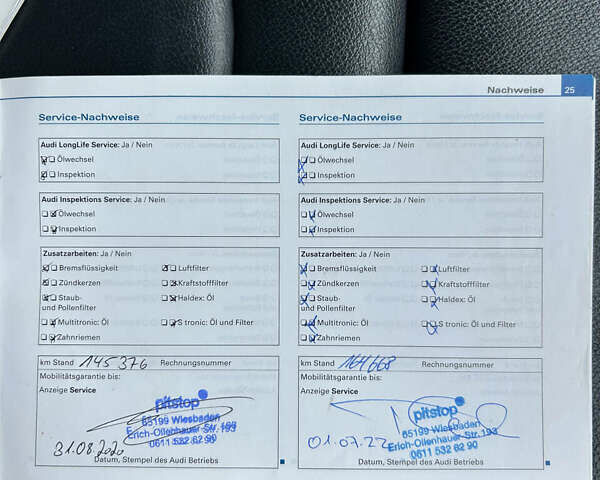 Nachweise 25
Service-Nachweise
Audi LongLife Service: Ja / Nein
Ölwechsel
Inspektion
Audi Inspektions Service: Ja / Nein
Ölwechsel
Inspektion
Zusatzarbeiten: Ja / Nein
Bremsflüssigkeit Luftfilter
Zündkerzen Kraftstofffilter
Staub- Haldex: Öl
und Pollenfilter
Multitronic: Öl S tronic: Öl und Filter
Zahnriemen
km Stand 145376 Rechnungsnummer
Mobilitätsgarantie bis:
Anzeige Service
pitstop
65199 Wiesbaden
Erich-Ollenhauer-Str. 193
0611 532 62 90
31.08.2020
Datum, Stempel des Audi Betriebs
Service-Nachweise
Audi LongLife Service: Ja / Nein
Ölwechsel
Inspektion
Audi Inspektions Service: Ja / Nein
Ölwechsel
Inspektion
Zusatzarbeiten: Ja / Nein
Bremsflüssigkeit Luftfilter
Zündkerzen Kraftstofffilter
Staub- Haldex: Öl
und Pollenfilter
Multitronic: Öl S tronic: Öl und Filter
Zahnriemen
km Stand 164668 Rechnungsnummer
Mobilitätsgarantie bis:
Anzeige Service
pitstop
65199 Wiesbaden
Erich-Ollenhauer-Str. 193
0611 532 62 90
01.07.22
Datum, Stempel des Audi Betriebs